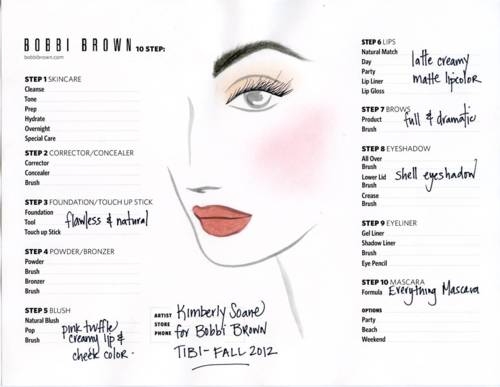 BOBBI BROWN 10 STEP:
bobbibrown.com
STEP 1 SKINCARE
Cleanse
Tone
Prep
Hydrate
Overnight
Special Care
STEP 2 CORRECTOR/CONCEALER
Corrector
Concealer
Brush
STEP 3 FOUNDATION/TOUCH UP STICK
Foundation
Tool
Touch up Stick
flawless & natural
STEP 4 POWDER/BRONZER
Powder
Brush
Bronzer
Brush
STEP 5 BLUSH
Natural Blush
Pop
Brush
pink truffle
creamy lip &
cheek color.
ARTIST
STORE
PHONE
Kimberly Soane
for Bobbi Brown
TIBI-FALL 2012
STEP 6 LIPS
Natural Match
Day
Party
Lip Liner
Lip Gloss
latte creamy
matte lipcolor
STEP 7 BROWS
Product
Brush
full & dramatic
STEP 8 EYESHADOW
All Over
Brush
Lower Lid
Brush
Crease
Brush
shell eyeshadow
STEP 9 EYELINER
Gel Liner
Shadow Liner
Brush
Eye Pencil
STEP 10 MASCARA
Formula
Everything Mascara
OPTIONS
Party
Beach
Weekend